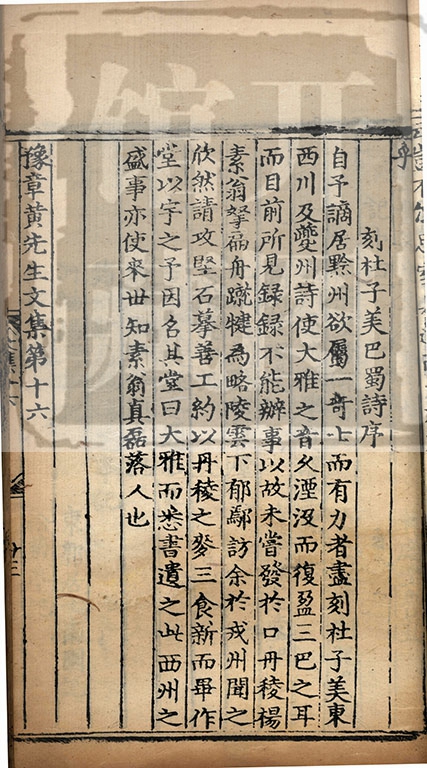 乎
刻杜子美巴蜀詩序
自予謫居黔州欲屬一奇士而有力者盡刻杜子美東
西川及夔州詩使大雅之音久湮沒而復盈三巴之耳
而目前所見録録不能辦事以故未嘗發於口丹稜楊
素翁拏扁舟蹴犍為略陵雲下郁鄢訪余於戎州聞之
欣然請攻堅石摹善工約以丹稜之麥三食新而畢作
堂以宇之予因名其堂曰大雅而悉書遺之此西州之
盛事亦使來世知素翁真磊落人也
豫章黄先生文集第十六